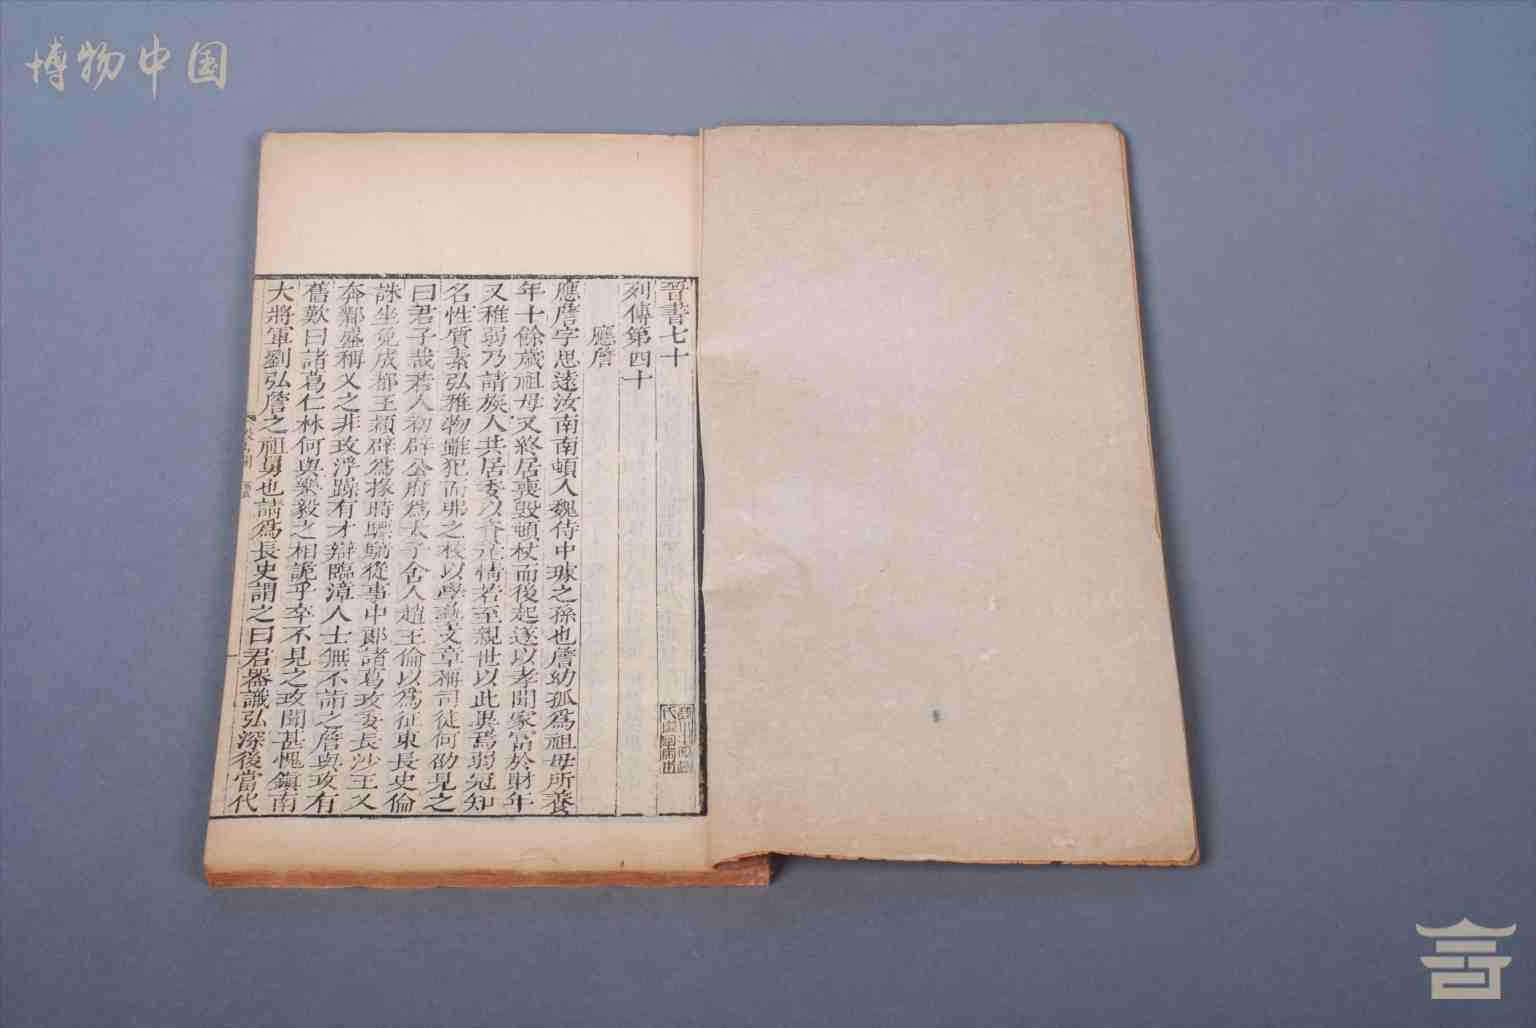 博物中国
晋書七十
列傳第四十
應詹
應詹字思遠汝南南頓人魏侍中璩之孫也詹幼孤爲祖母所養
年十餘歲祖母又終居喪毀頓杖而後起遂以孝聞家富於財年
又稚弱乃請族人共居委以資產情若至親世以此異焉弱冠知
名性質素弘雅物雖犯而弗之校以學藝文章稱司徒何劭見之
曰君子哉若人初辟公府爲太子舍人趙王倫以爲征東長史倫
誅坐免成都王穎辟爲掾時驃騎從事中郎諸葛玫委長沙王乂
奔鄴盛稱乂之非玫浮躁有才辯臨漳人士無不詣之詹與玫有
舊歎曰諸葛仁林何與樂毅之相詭乎卒不見之玫聞甚愧鎮南
大將軍劉弘詹之祖舅也請爲長史謂之曰君器識弘深後當代